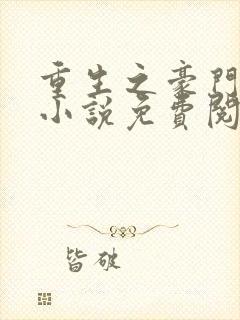 重生之豪門
小說免費閱
皆破